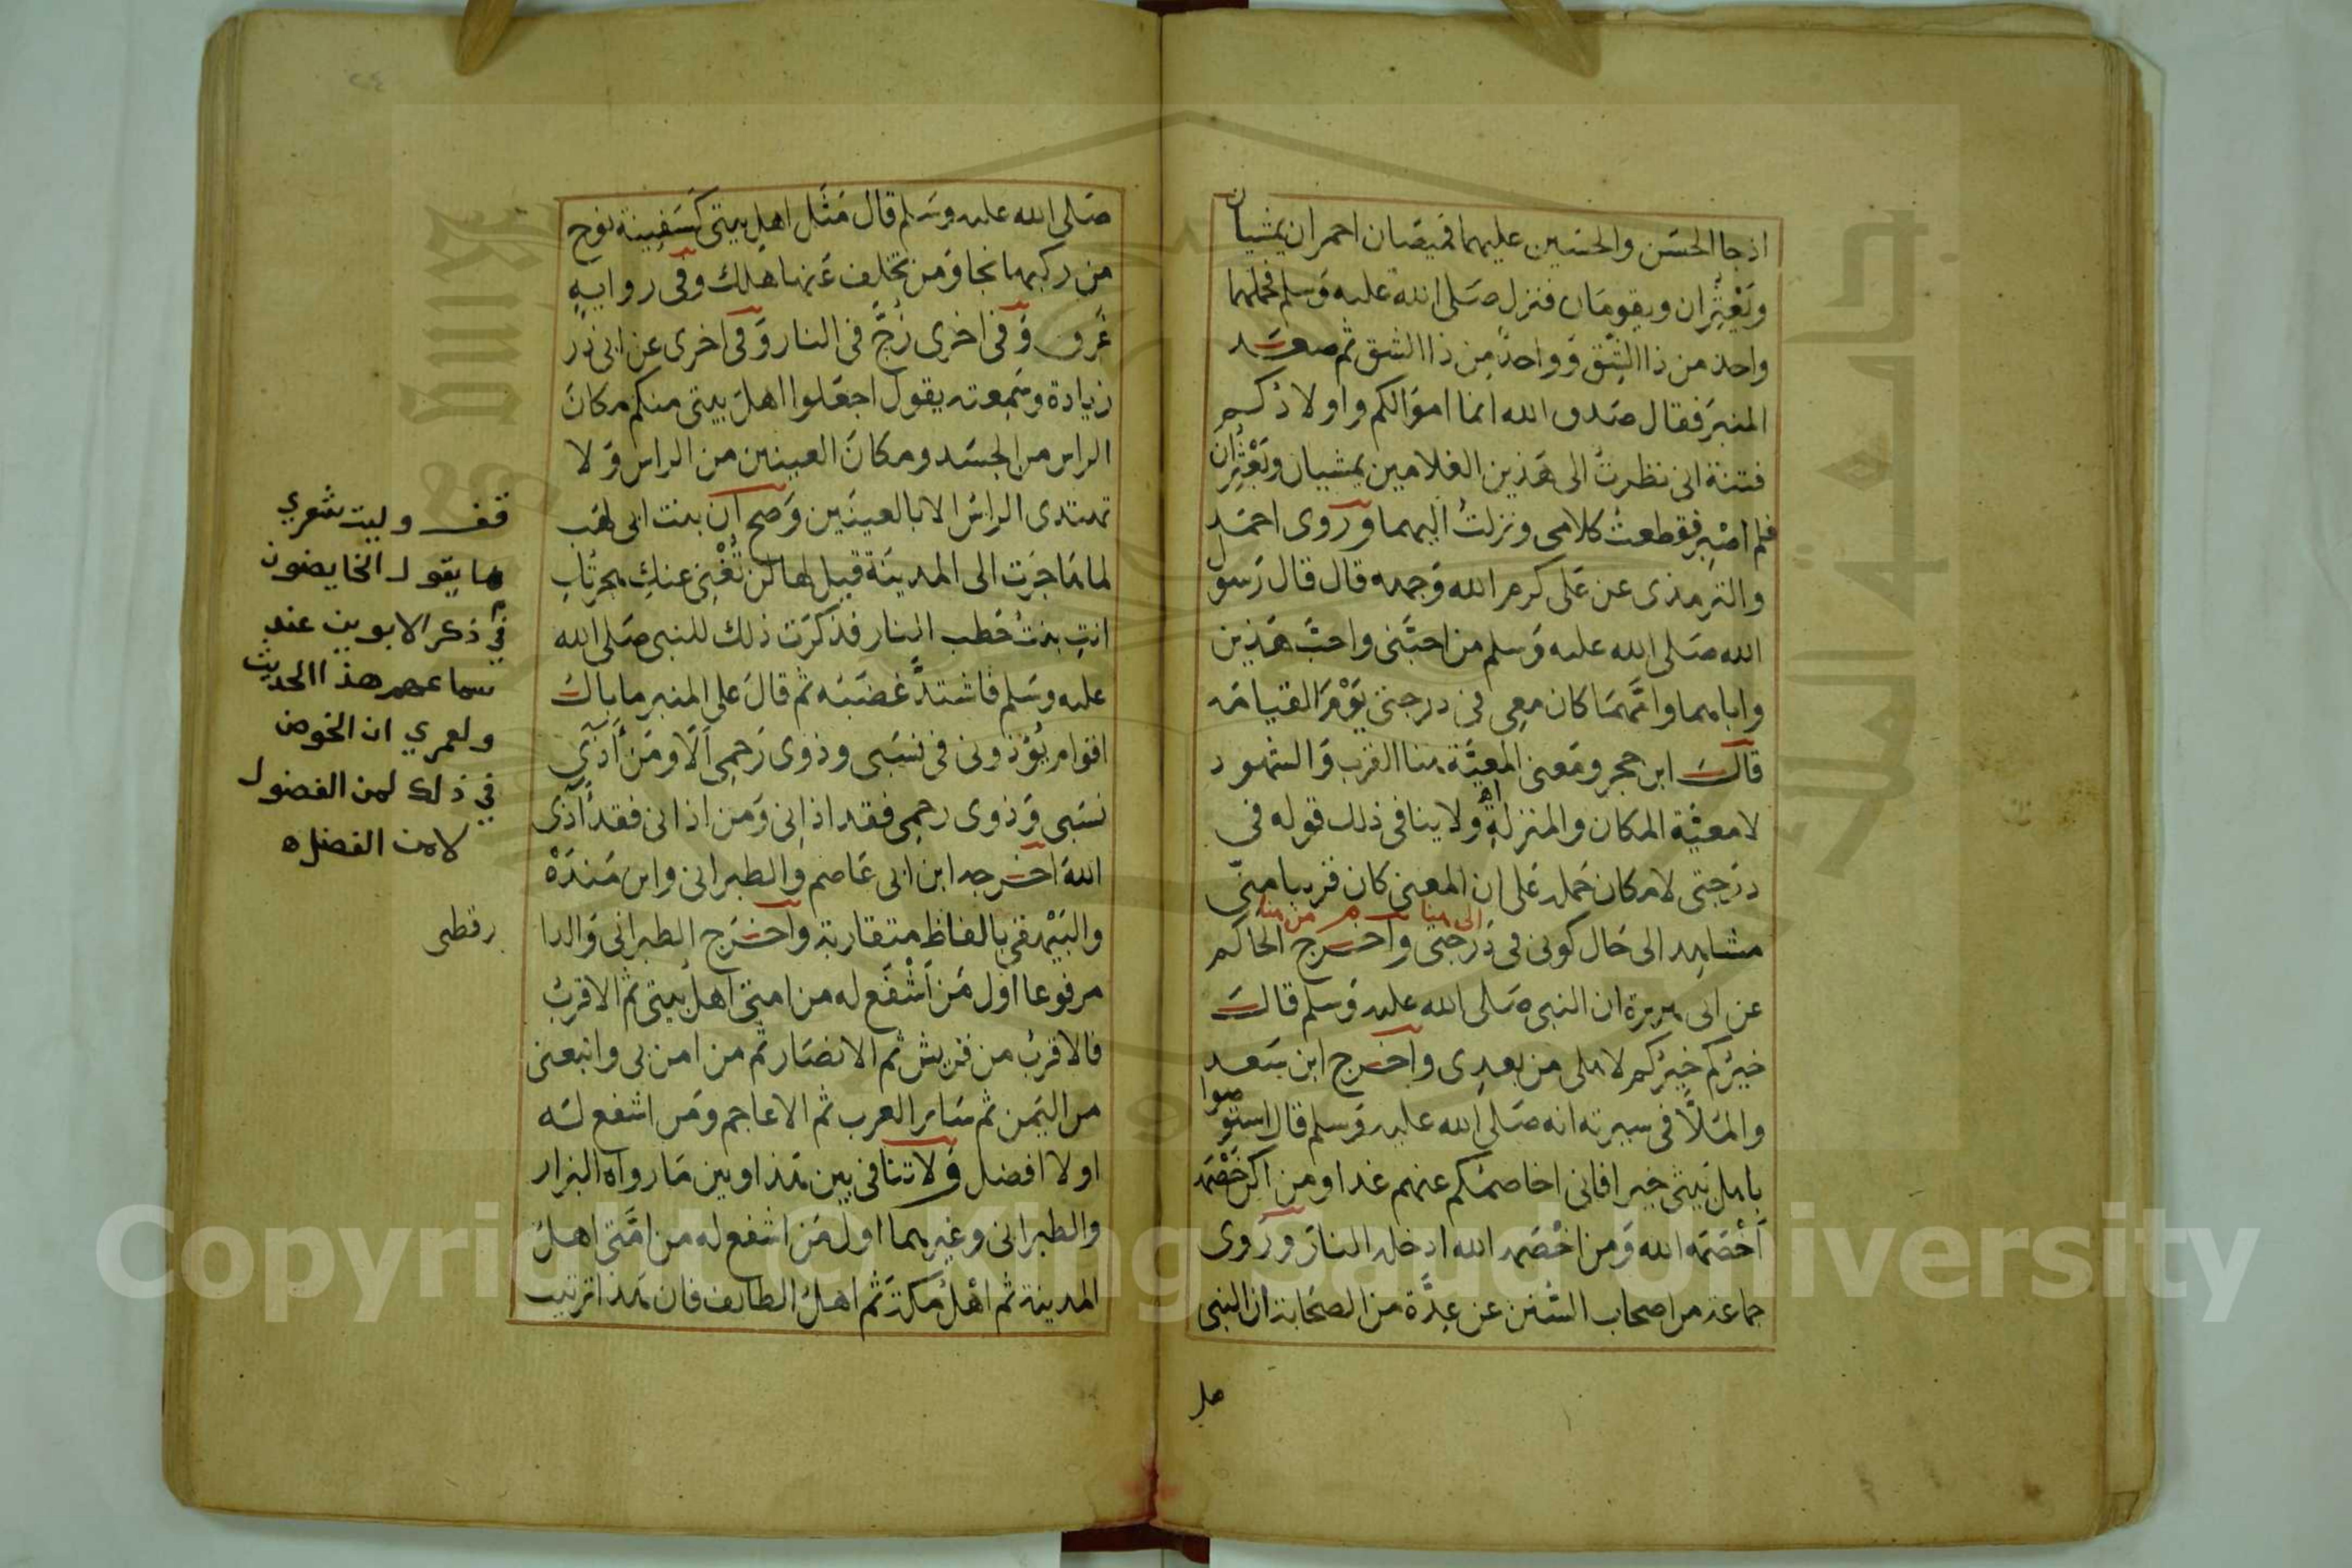 اذ جا الحسَن والحسَين عليهما قميصَان احمران يمشيان
ويَعْثِرُان ويقومَان فنزل صَلى الله عليه وَسلم فحملهما
واحد من ذا الشِّق وَواحدٌ مِن ذا الشق ثم صعَــد
المنبرَ فقال صَدق الله انما اموَالكم واولادكـم
فتنة انى نظرتُ الى هَذين الغلامين يمشيان ويَعْثِرُان
فلم اصْبِر فقطعتُ كلامى ونزلتُ اليهما وروى احمَد
والترمذى عن عَلى كرم الله وَجهه قال قال رَسول
الله صَلى الله عليه وَسلم من احبَّنى واحبَّ هَذين
واباهما وامَّهمَا كان معِى فى درجتى يَوْمَ القيامَه
قالَـــ ابن حجر ومَعنى المعيَّة هنا القرب وَالشهود
لا معيَّة المكان والمنزلةِ اه ولا ينافى ذلك قوله فى
درَجتى لامكان حَمله عَلى ان المعنى كان قريبا منّى
الى هنا من منا
مشاهد الى حَال كونى فى دَرَجتى واخـرج الحاكم
عن ابى هريرة ان النبى صَلى الله عليه وَسلم قالَـــ
خيرُكم خيرُكم لاهلى من بعدِى واخـرج ابن سَعـد
والمَلّا فى سيرته انه صَلى الله عليه وَسلم قال استوصوا
باهل بَيتى خيرا فانى اخاصمُكم عنهم غدا ومن اكن خَصْمَه
اَخْصَمَه الله وَمن اخْصَمه الله ادخله النارَ ورَوى
جماعة من اصحاب السُّنن عن عِدَّة من الصحَابة ان النبى
صلى الله عليه وسَلم قال مَثَل اهل بيتى كَسَفِينة نوح
من ركبها نجا وَمن تخلف عَنها هَلك وفى روايةٍ
غَرق وَفى اخرى زُجَّ فى النار وَفى اخرى عن ابى ذر
زيادة وسَمِعته يقول اجعَلوا اهلَ بيتى منكم مكانَ
الراس من الجسَد ومكانَ العينين من الراس وَلا
تهتدى الراسُ الا بالعينَين وَصح ان بنت ابى لهَب
لما هَاجرَت الى المدينَة قيل لها لن تُغْنِىَ عنكِ هجرتُكِ
انتِ بنتُ حَطب النار فذكرَت ذلك للنبى صَلى الله
عليه وسَلم فاشتدَّ غضَبُه ثم قالَ على المنبر ما بالُ
اقوام يُؤذونى فى نسَبى وذوى رَحمِى اَلَا ومَن اَذَى
نسَبى وَذوى رحمِى فقد اذانى وَمن اذانى فقد اَذى
اللهَ اخـرجه ابن ابى عَاصم والطبرانى وابن مَندَهْ
والبَيْهقى بالفاظ متقاربة واخـرَج الطبرانى وَالدا
رقطنى
مرفوعا اول مَن اَشْفَع له من امتى اهلُ بيتى ثم الاقربُ
فالاقربُ من قريش ثم الانصَار ثم من امن بى واتبعنى
من اليَمن ثم سَائر العرب ثم الاعاجم ومَن اشفع لهَ
اولا افضل وَلا تنافى بين هَذا وبين مَا رواه البزار
والطبرانى وغيرهما اول مَن اشفع له من امَّتى اهـلُ
المدينة ثم اهْلُ مكةَ ثم اهـلُ الطائف فان هَذا ترتيب
قف وليت شعري
ما يقول الخايضون
في ذكر الابوين عند
سماعهم هذا الحديث
ولعمري ان الخوض
في ذلك لمن الفضول
لا من الفضل ه
Copyright © King Saud University